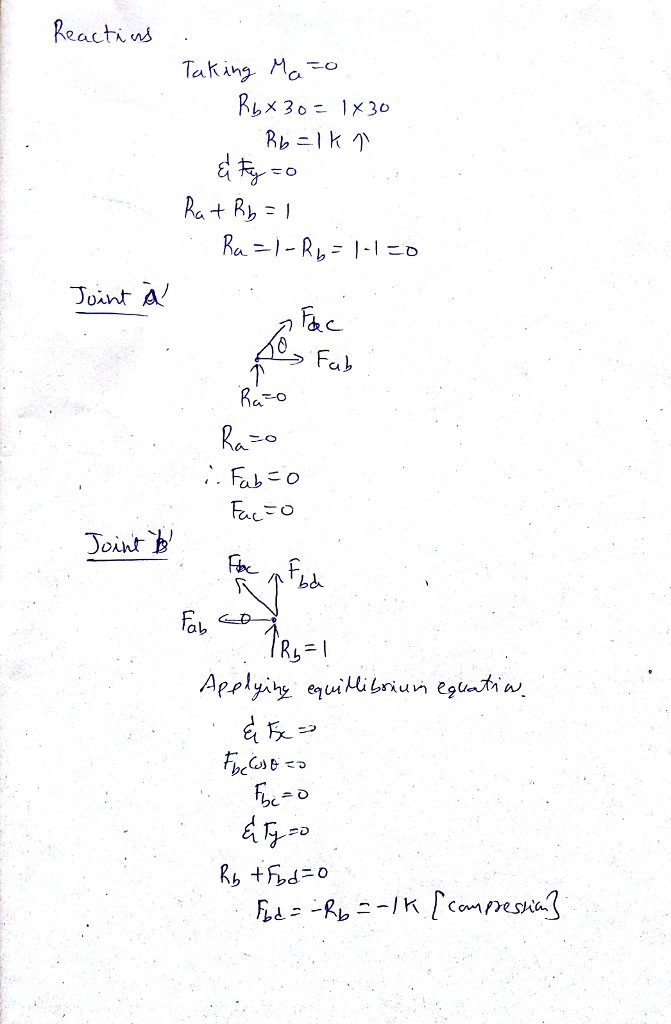 Reactions
Taking Ma=0
Rb×30 = 1×30
Rb = 1K ↑
Σ Fy =0
Ra + Rb = 1
Ra = 1 - Rb = 1-1 = 0
Joint 'a'
Fac
θ
Fab
Ra=0
Ra=0
∴ Fab=0
Fac=0
Joint 'b'
Fbc Fbd
Fab 0
Rb=1
Applying equillibrium equation.
Σ Fx =0
Fbc Cosθ =0
Fbc=0
Σ Fy=0
Rb + Fbd=0
Fbd = -Rb = -1K [compression]